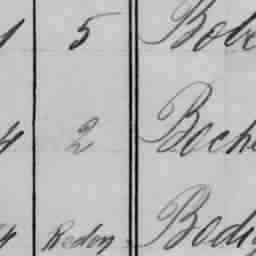 1 5 Bobe
4 2 Boche
4 Redon Bodig